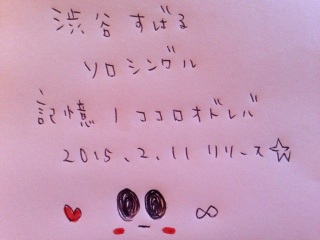 渋谷すばる
ソロシングル
記憶/ココロオドレバ
2015.2.11 リリース☆
♥ ∞